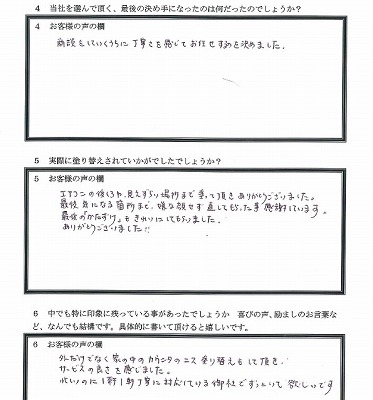 4 当社を選んで頂く、最後の決め手になったのは何だったのでしょうか?
4 お客様の声の欄
商談をしていくうちに丁寧さを感じてお任せするを決めました。
5 実際に塗り替えされていかがでしたでしょうか?
5 お客様の声の欄
エアコンの後ろや、見えずらい場所まで塗って頂きありがとうございました。
最後気になる箇所まで、嫌な顔せず直してもらった事感謝しています。
最後の"かたずけ"もきれいにしてもらいました。
ありがとうございました!!
6 中でも特に印象に残っている事があったでしょうか 喜びの声、励ましのお言葉な
ど、なんでも結構です。具体的に書いて頂けると嬉しいです。
6 お客様の声の欄
外だけでなく家の中のカウンタのニス塗り替えもして頂き、
サービスの良さを感じました。
1軒1軒丁寧に対応している御社でずっといて欲しいです